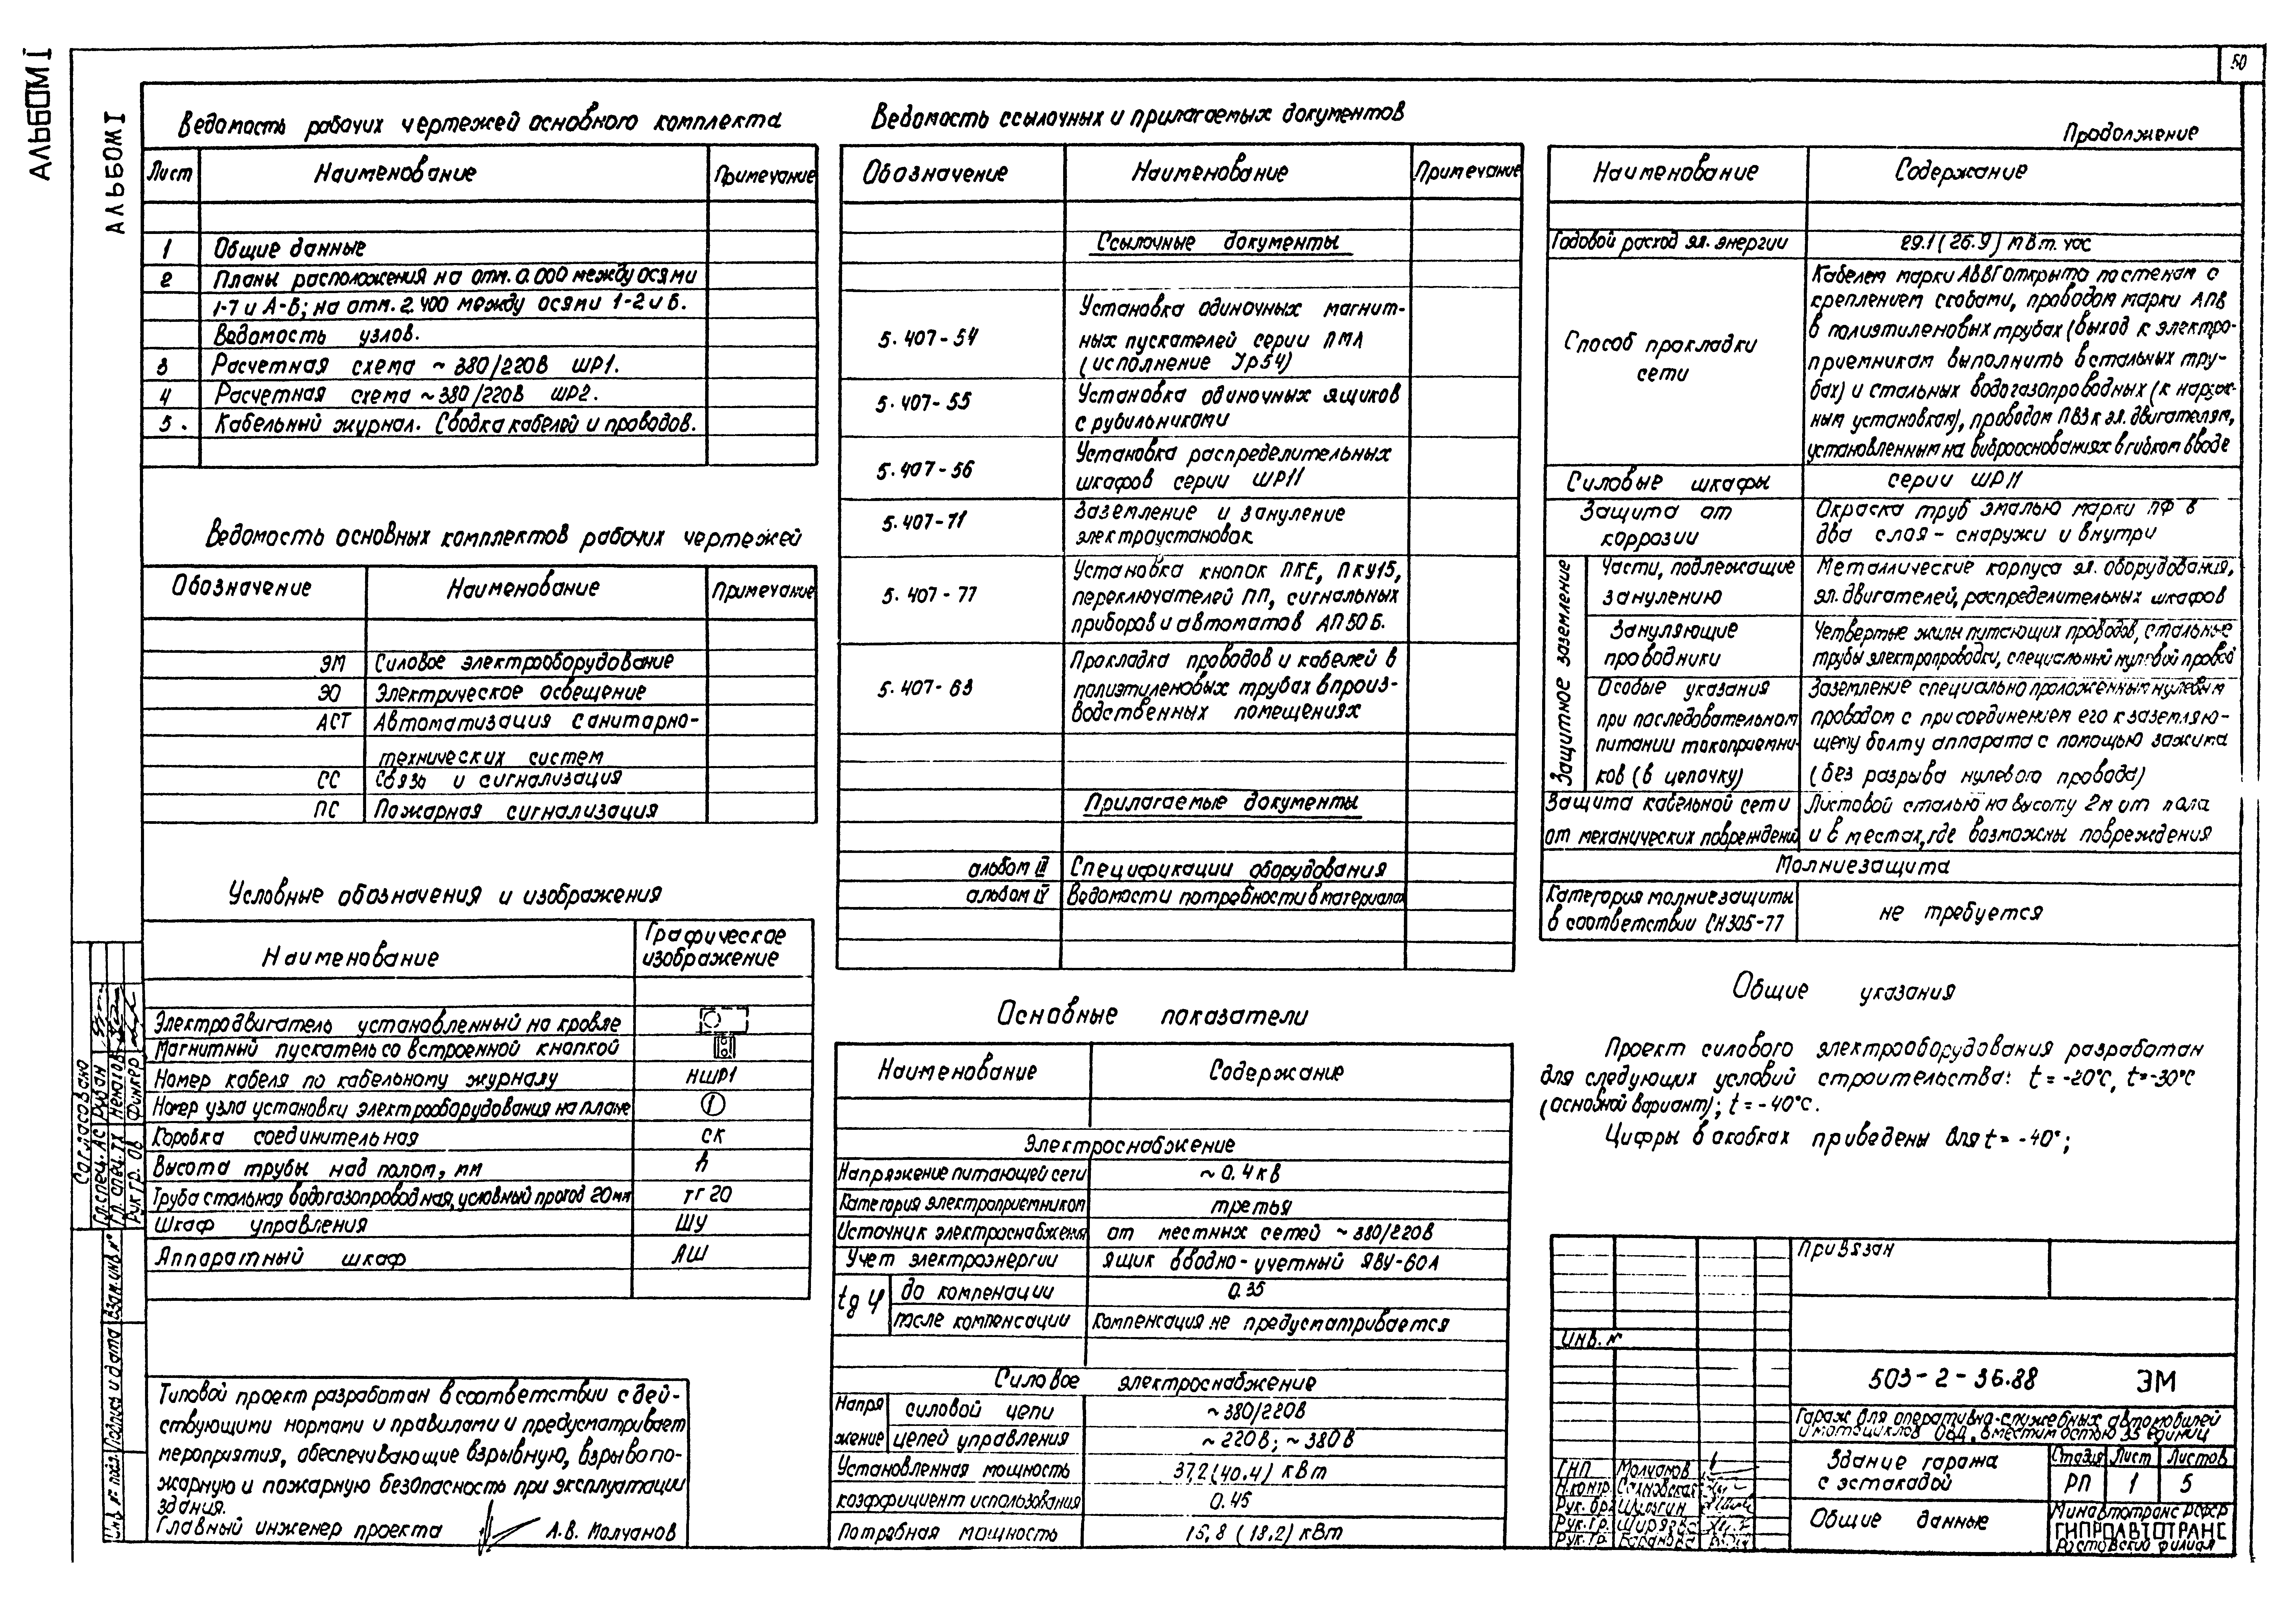 АЛЬБОМ I
АЛЬБОМ I
50
Ведомость рабочих чертежей основного комплекта
Лист Наименование Примечание
1 Общие данные
2 Планы расположения на отм. 0.000 между осями
1-7 и А-Б; на отм. 2.400 между осями 1-2 и Б.
Ведомость узлов.
3 Расчетная схема ~ 380/220В ШР1.
4 Расчетная схема ~ 380/220В ШР2.
5. Кабельный журнал. Сводка кабелей и проводов.
Ведомость основных комплектов рабочих чертежей
Обозначение Наименование Примечание
ЭМ Силовое электрооборудование
ЭО Электрическое освещение
АСТ Автоматизация санитарно-
технических систем
СС Связь и сигнализация
ПС Пожарная сигнализация
Условные обозначения и изображения
Наименование Графическое
изображение
Электродвигатель установленный на кровле
Магнитный пускатель со встроенной кнопкой
Номер кабеля по кабельному журналу НШР1
Номер узла установки электрооборудования на плане 1
Коробка соединительная СК
Высота трубы над полом, мм h
Труба стальная водогазопроводная, условный проход 20мм тг 20
Шкаф управления ШУ
Аппаратный шкаф ЯШ
Типовой проект разработан в соответствии с дей-
ствующими нормами и правилами и предусматривает
мероприятия, обеспечивающие взрывную, взрывопо-
жарную и пожарную безопасность при эксплуатации
здания.
Главный инженер проекта А.В. Молчанов
Ведомость ссылочных и прилагаемых документов
Обозначение Наименование Примечание
Ссылочные документы
5.407-54 Установка одиночных магнит-
ных пускателей серии ПМЛ
(исполнение УР54)
5.407-55 Установка одиночных ящиков
с рубильниками
5.407-56 Установка распределительных
шкафов серии ШР11
5.407-71 Заземление и зануление
электроустановок
5.407-77 Установка кнопок ПКЕ, ПКУ15,
переключателей ПП, сигнальных
приборов и автоматов АП50Б.
5.407-63 Прокладка проводов и кабелей в
полиэтиленовых трубах в произ-
водственных помещениях
Прилагаемые документы
альбом III Спецификации оборудования
альбом IV Ведомости потребности в материалах
Основные показатели
Наименование Содержание
Электроснабжение
Напряжение питающей сети ~ 0.4 кВ
Категория электроприемников третья
Источник электроснабжения от местных сетей ~ 380/220В
Учет электроэнергии ящик вводно-учетный ЯВУ-60А
tg φ до компенации 0.35
после компенсации Компенсация не предусматривается
Силовое электроснабжение
Напря силовой цепи ~380/220В
жение цепей управления ~220В; ~380В
Установленная мощность 37,2 (40.4) кВт
коэффициент использования 0.45
Потребная мощность 15,8 (18.2) кВт
Продолжение
Наименование Содержание
Годовой расход эл. энергии 29.1 (26.9) мВт. час
Способ прокладки
сети
Кабелем марки АВВГ открыто по стенам с
креплением скобами, проводом марки АПВ
в полиэтиленовых трубах (выход к электро-
приемникам выполнить в стальных тру-
бах) и стальных водогазопроводных (к наруж-
ным установкам), проводом ПВ3 к эл. двигателям,
установленным на виброоснованиях в гибком вводе
Силовые шкафы серии ШР11
Защита от
коррозии
Окраска труб эмалью марки ПФ в
два слоя - снаружи и внутри
Защитное заземление
Части, подлежащие
занулению
Металлические корпуса эл. оборудования,
эл. двигателей, распределительных шкафов
Зануляющие
проводники
Четвертые жилы питающих проводов, стальные
трубы электропроводки, специальный нулевой провод
Особые указания
при последовательном
питании токоприемни-
ков (в цепочку)
Заземление специально проложенным нулевым
проводом с присоединением его к заземляю-
щему болту аппарата с помощью зажима
(без разрыва нулевого провода)
Защита кабельной сети
от механических повреждений
Листовой сталью на высоту 2м от пола
и в местах, где возможны повреждения
Молниезащита
Категория молниезащиты
в соответствии СН305-77
не требуется
Общие указания
Проект силового электрооборудования разработан
для следующих условий строительства: t = -20°С, t = -30°С
(основной вариант); t = -40°С.
Цифры в скобках приведены для t = -40°;
Привязан
Инв. №
503-2-36.88 ЭМ
Гараж для оперативно-служебных автомобилей
и мотоциклов ОВД, вместимостью 35 единиц
Здание гаража
с эстакадой
Стадия Лист Листов
РП 1 5
Общие данные
Минавтотранс РСФСР
ГИПРОАВТОТРАНС
Ростовский филиал
ГИП Молчанов
Н.контр.
Рук. бр.
Рук. гр.
Рук. гр.
Согласовано
Гл. спец. АС Рубан
Гл. спец. ТХ
Рук. гр. ОВ Финкер
Взам. инв. №
Подпись и дата
Инв. № подл.